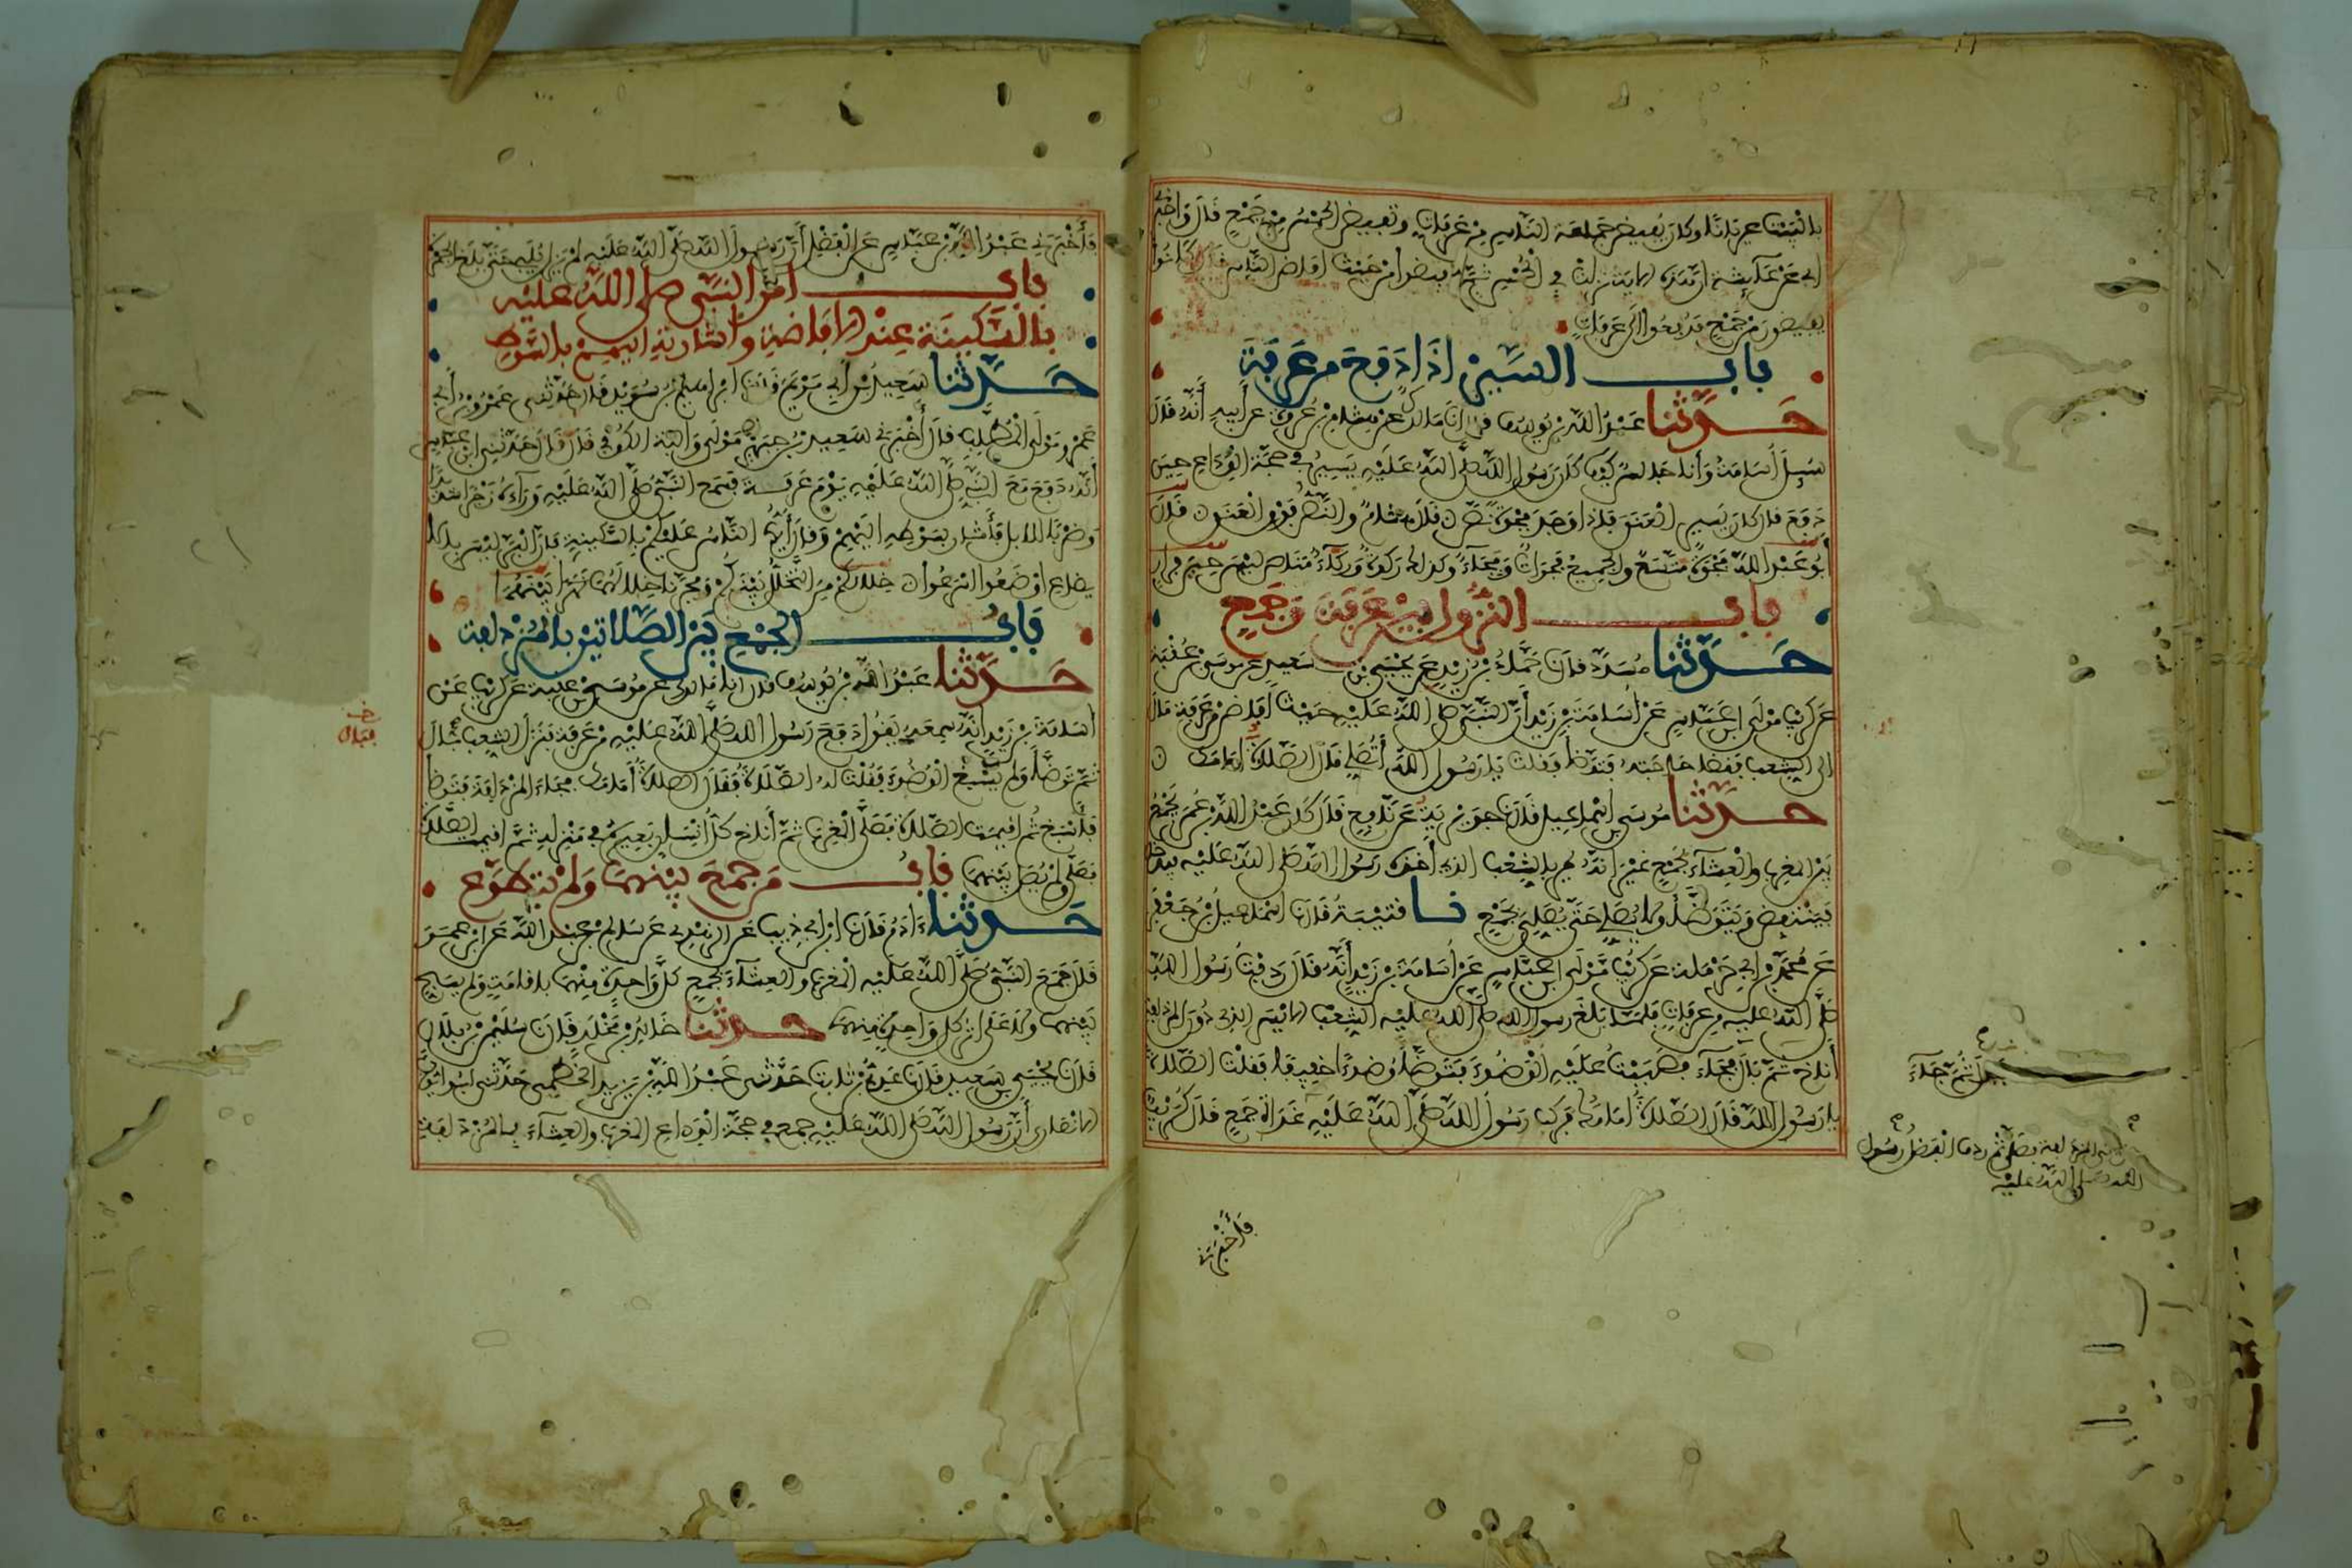 بالبيت عريانا وكان يفيض جماعة الناس من عرفات وتفيض الحمس من جمع قال واخبرني
ابي عن عائشة ان هذه الاية نزلت في الحمس ثم افيضوا من حيث افاض الناس قال كانوا
يفيضون من جمع فدفعوا الى عرفات
باب السير اذا دفع من عرفة
حدثنا عبد الله بن يوسف قال انا مالك عن هشام بن عروة عن أبيه أنه قال
سئل أسامة وأنا جالس كيف كان رسول الله صلى الله عليه يسير في حجة الوداع حين
دفع قال كان يسير العنق فإذا وجد فجوة نص قال هشام والنص فوق العنق قال
أبو عبد الله فجوة متسع والجميع فجوات وفجاء وكذلك ركوة وركاء مناص ليس حين فرار
باب النزول بين عرفة وجمع
حدثنا مسدد قال حماد بن زيد عن يحيى بن سعيد عن موسى بن عقبة
عن كريب مولى ابن عباس عن أسامة بن زيد أن النبي صلى الله عليه حيث أفاض من عرفة مال
الى الشعب فقضا حاجته فتوضأ فقلت يا رسول الله أتصلي قال الصلاة امامك
حدثنا موسى بن اسماعيل قال جويرية عن نافع قال كان عبد الله بن عمر يجمع
بين المغرب والعشاء بجمع غير انه يمر بالشعب الذي أخذه رسول الله صلى الله عليه فيدخل
فينتفض ويتوضأ ولا يصلي حتى يصلي بجمع نا قتيبة قال اسماعيل بن جعفر
عن محمد بن ابي حرملة عن كريب مولى ابن عباس عن أسامة بن زيد أنه قال ردفت رسول الله
صلى الله عليه من عرفات فلما بلغ رسول الله صلى الله عليه الشعب الايسر الذي دون المزدلفة
أناخ فبال ثم جاء فصببت عليه الوضوء فتوضأ وضوءا خفيفا فقلت الصلاة
يا رسول الله قال الصلاة أمامك فركب رسول الله صلى الله عليه غداة جمع قال كريب
فبال ثم جاء
المزدلفة فصلى ثم ردف الفضل رسول
الله صلى الله عليه
فأخبرني
فأخبرني عبد الله بن عباس عن الفضل أن رسول الله صلى الله عليه لم يزل يلبي حتى بلغ الجمرة
باب امر النبي صلى الله عليه
بالسكينة عند الافاضة واشارته اليهم بالسوط
حدثنا سعيد بن أبي مريم قال ابراهيم بن سويد قال حدثني عمرو بن أبي
عمرو مولى المطلب قال أخبرني سعيد بن جبير مولى والبة الكوفي قال حدثني ابن عباس
أنه دفع مع النبي صلى الله عليه يوم عرفة فسمع النبي صلى الله عليه وراءه زجرا شديدا
وضربا للابل فأشار بسوطه اليهم وقال أيها الناس عليكم بالسكينة فإن البر ليس بالا
يضاع اوضعوا اسرعوا خلالكم من التخلل بينكم وفجرنا خلالهما نهرا بينهما
باب الجمع بين الصلاتين بالمزدلفة
حدثنا عبد الله بن يوسف قال انا مالك عن موسى بن عقبة عن كريب عن
أسامة بن زيد أنه سمعه يقول دفع رسول الله صلى الله عليه من عرفة فنزل الشعب فبال
ثم توضأ ولم يسبغ الوضوء فقلت له الصلاة فقال الصلاة أمامك فجاء المزدلفة فتوضأ
فأسبغ ثم اقيمت الصلاة فصلى المغرب ثم أناخ كل انسان بعيره في منزله ثم اقيمت الصلاة
فصلى ولم يصل بينهما باب من جمع بينهما ولم يتطوع
حدثنا ءادم قال ابن ابي ذيب عن الزهري عن سالم بن عبد الله عن ابن عمر
قال جمع النبي صلى الله عليه المغرب والعشاء بجمع كل واحدة منهما باقامة ولم يسبح
بينهما ولا على اثر كل واحدة منهما حدثنا خالد بن مخلد قال سليمن بن بلال
قال يحيى بن سعيد قال عدي بن ثابت حدثني عبد الله بن يزيد الخطمي حدثني ابو ايوب
الانصاري أن رسول الله صلى الله عليه جمع في حجة الوداع المغرب والعشاء بالمزدلفة
فبال